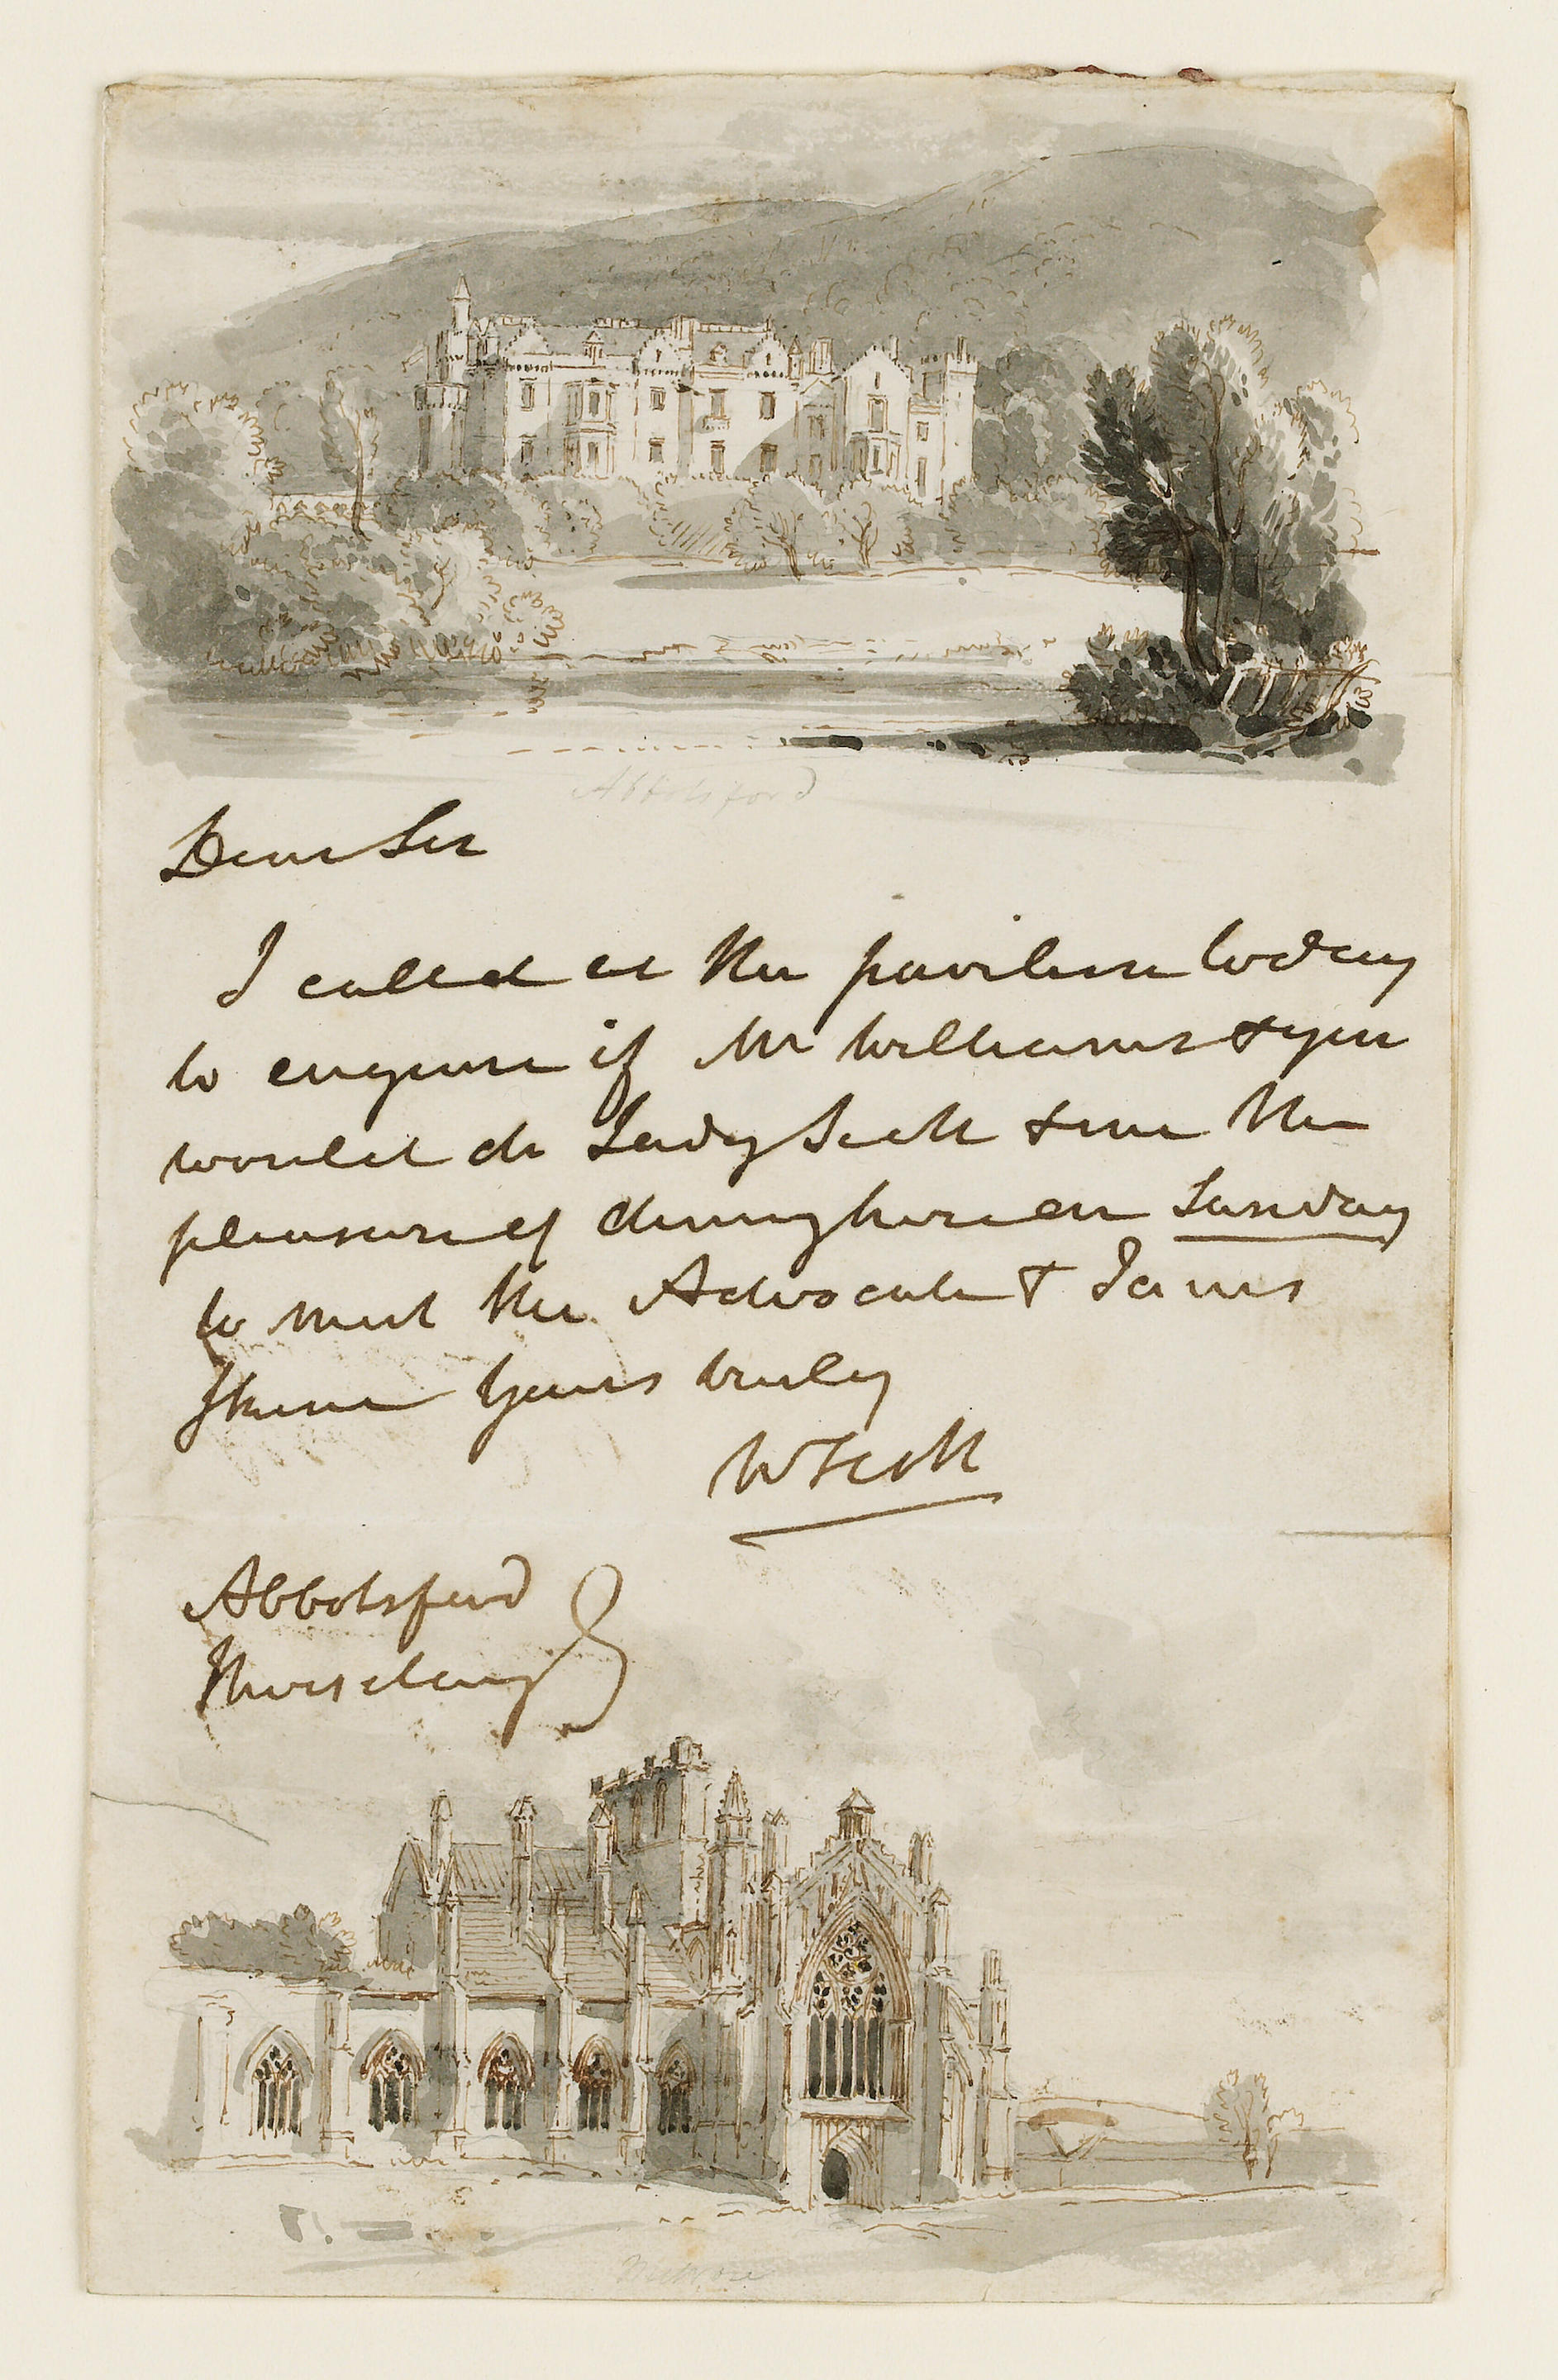 Abbotsford
Dear Sir
I called at the pavilion today
to enquire if Mr Williams & you
would do Lady Scott & me the
pleasure of dining here on Sunday
to meet the Advocate & James
Skene Yours truly
W Scott
Abbotsford
Thursday
Melrose